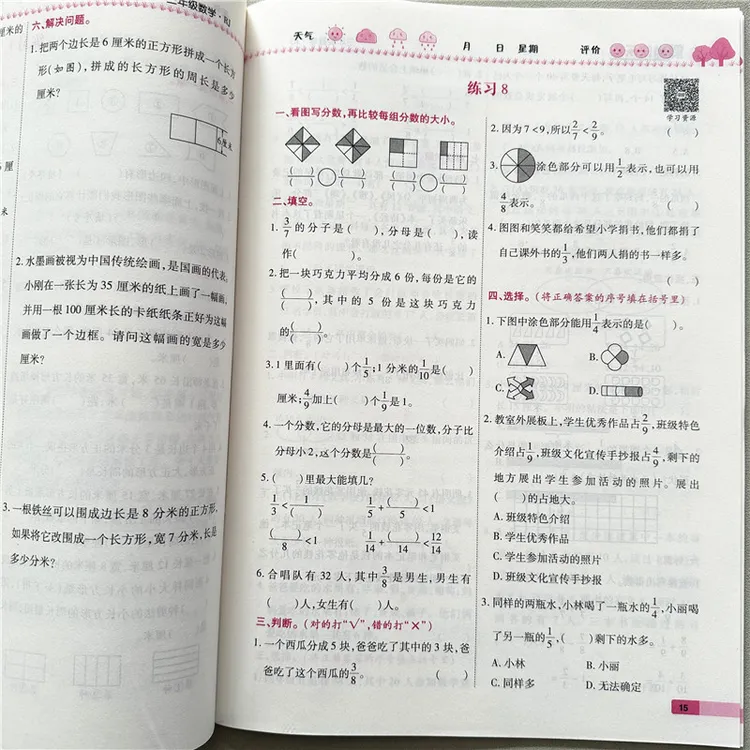 二年级数学·RJ
六、解决问题。
1.把两个边长是6厘米的正方形拼成一个长方
形(如图),拼成的长方形的周长是多少
厘米?
6厘米
2.水墨画被视为中国传统绘画,是国画的代表,
小刚在一张长为35厘米的纸上画了一幅画,
并用一根100厘米长的卡纸纸条正好为这幅
画做了一个边框。请问这幅画的宽是多少
厘米?
3.一根铁丝可以围成边长是8分米的正方形,
如果将它改围成一个长方形,宽7分米,长是
多少分米?
天气 月 日 星期 评价
练习8
学习资源
一、看图写分数,再比较每组分数的大小。
( )/( ) ○ ( )/( ) ( )/( ) ○ ( )/( )
二、填空。
1. 3/7的分子是( ),分母是( ),读
作( )。
2.把一块巧克力平均分成6份,每份是它的
( )/( ),其中的5份是这块巧克力
的( )/( )。
3.1里面有( )个1/5;1分米的1/10是( )
厘米;4/9加上( )个1/9是1。
4.一个分数,它的分母是最大的一位数,分子比
分母小2,这个分数是( )/( )。
5.( )里最大能填几?
1/3<1/( ) 1/5+( )/5<1
( )/8<1 1/14+( )/14<12/14
6.合唱队有32人,其中3/8是男生,男生有
( )人,女生有( )人。
三、判断。(对的打“√”,错的打“×”)
1.一个西瓜分成5块,爸爸吃了其中的3块,爸
爸吃了这个西瓜的3/8。
2.因为7<9,所以2/7<2/9。 ( )
3. 涂色部分可以用1/2表示,也可以用
4/8表示。 ( )
4.图图和笑笑都给希望小学捐书,他们都捐了
自己课外书的1/3,他们两人捐的书一样多。
( )
四、选择。(将正确答案的序号填在括号里)
1.下图中涂色部分能用1/4表示的是( )。
A. B.
C. D.
2.教室外展板上,学生优秀作品占2/9,班级特色
介绍占1/9,班级文化宣传手抄报占4/9,剩下的
地方展出学生参加活动的照片。展出
( )的占地大。
A.班级特色介绍
B.学生优秀作品
C.学生参加活动的照片
D.班级文化宣传手抄报
3.同样的两瓶水,小林喝了一瓶水的1/4,小丽喝
了另一瓶的1/5,( )剩下的水多。
A.小林 B.小丽
C.同样多 D.无法确定
15